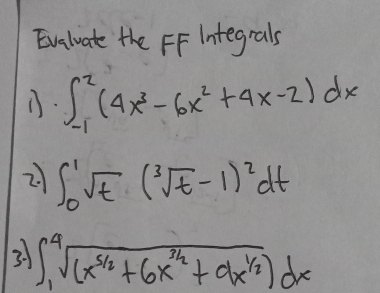 Evaluate the FF Integrals
1) ∫₋₁² (4x³ - 6x² + 4x - 2) dx
2.) ∫₀¹ √t (³√t - 1)² dt
3.) ∫₁⁴ √(x^5/2 + 6x^3/2 + 9x^1/2) dx